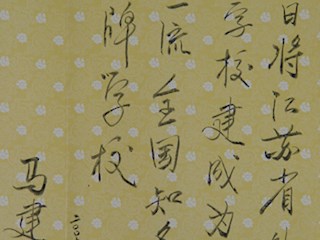 日将江苏省
学校建成为
一流全国知名
牌学校
二〇〇
马建